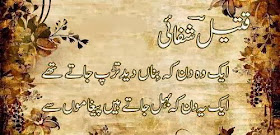 قتیل شفائی
ایک وہ دن کہ بناں دید تڑپ جاتے تھے
ایک یہ دن کہ بہل جاتے ہیں پیغاموں سے